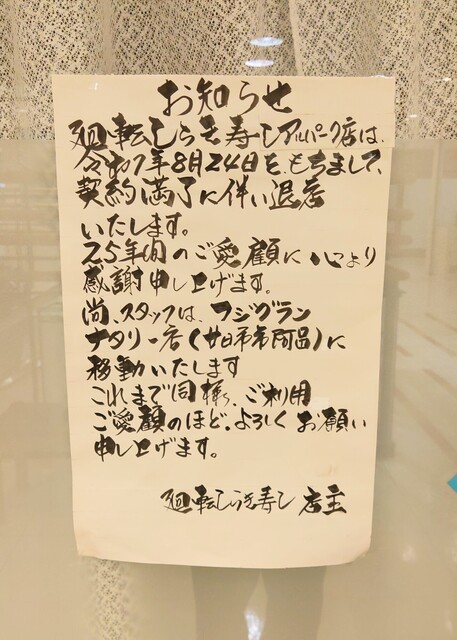 お知らせ
廻転しらき寿しアルパーク店は、
令和7年8月24日を、もちまして、
契約満了に伴い退店
いたします。
25年間のご愛顧に心より
感謝申し上げます。
尚、スタッフは、フジグラン
ナタリー店(廿日市市阿品)に
移動いたします
これまで同様、ご利用
ご愛顧のほど、よろしくお願い
申し上げます。
廻転しらき寿し 店主